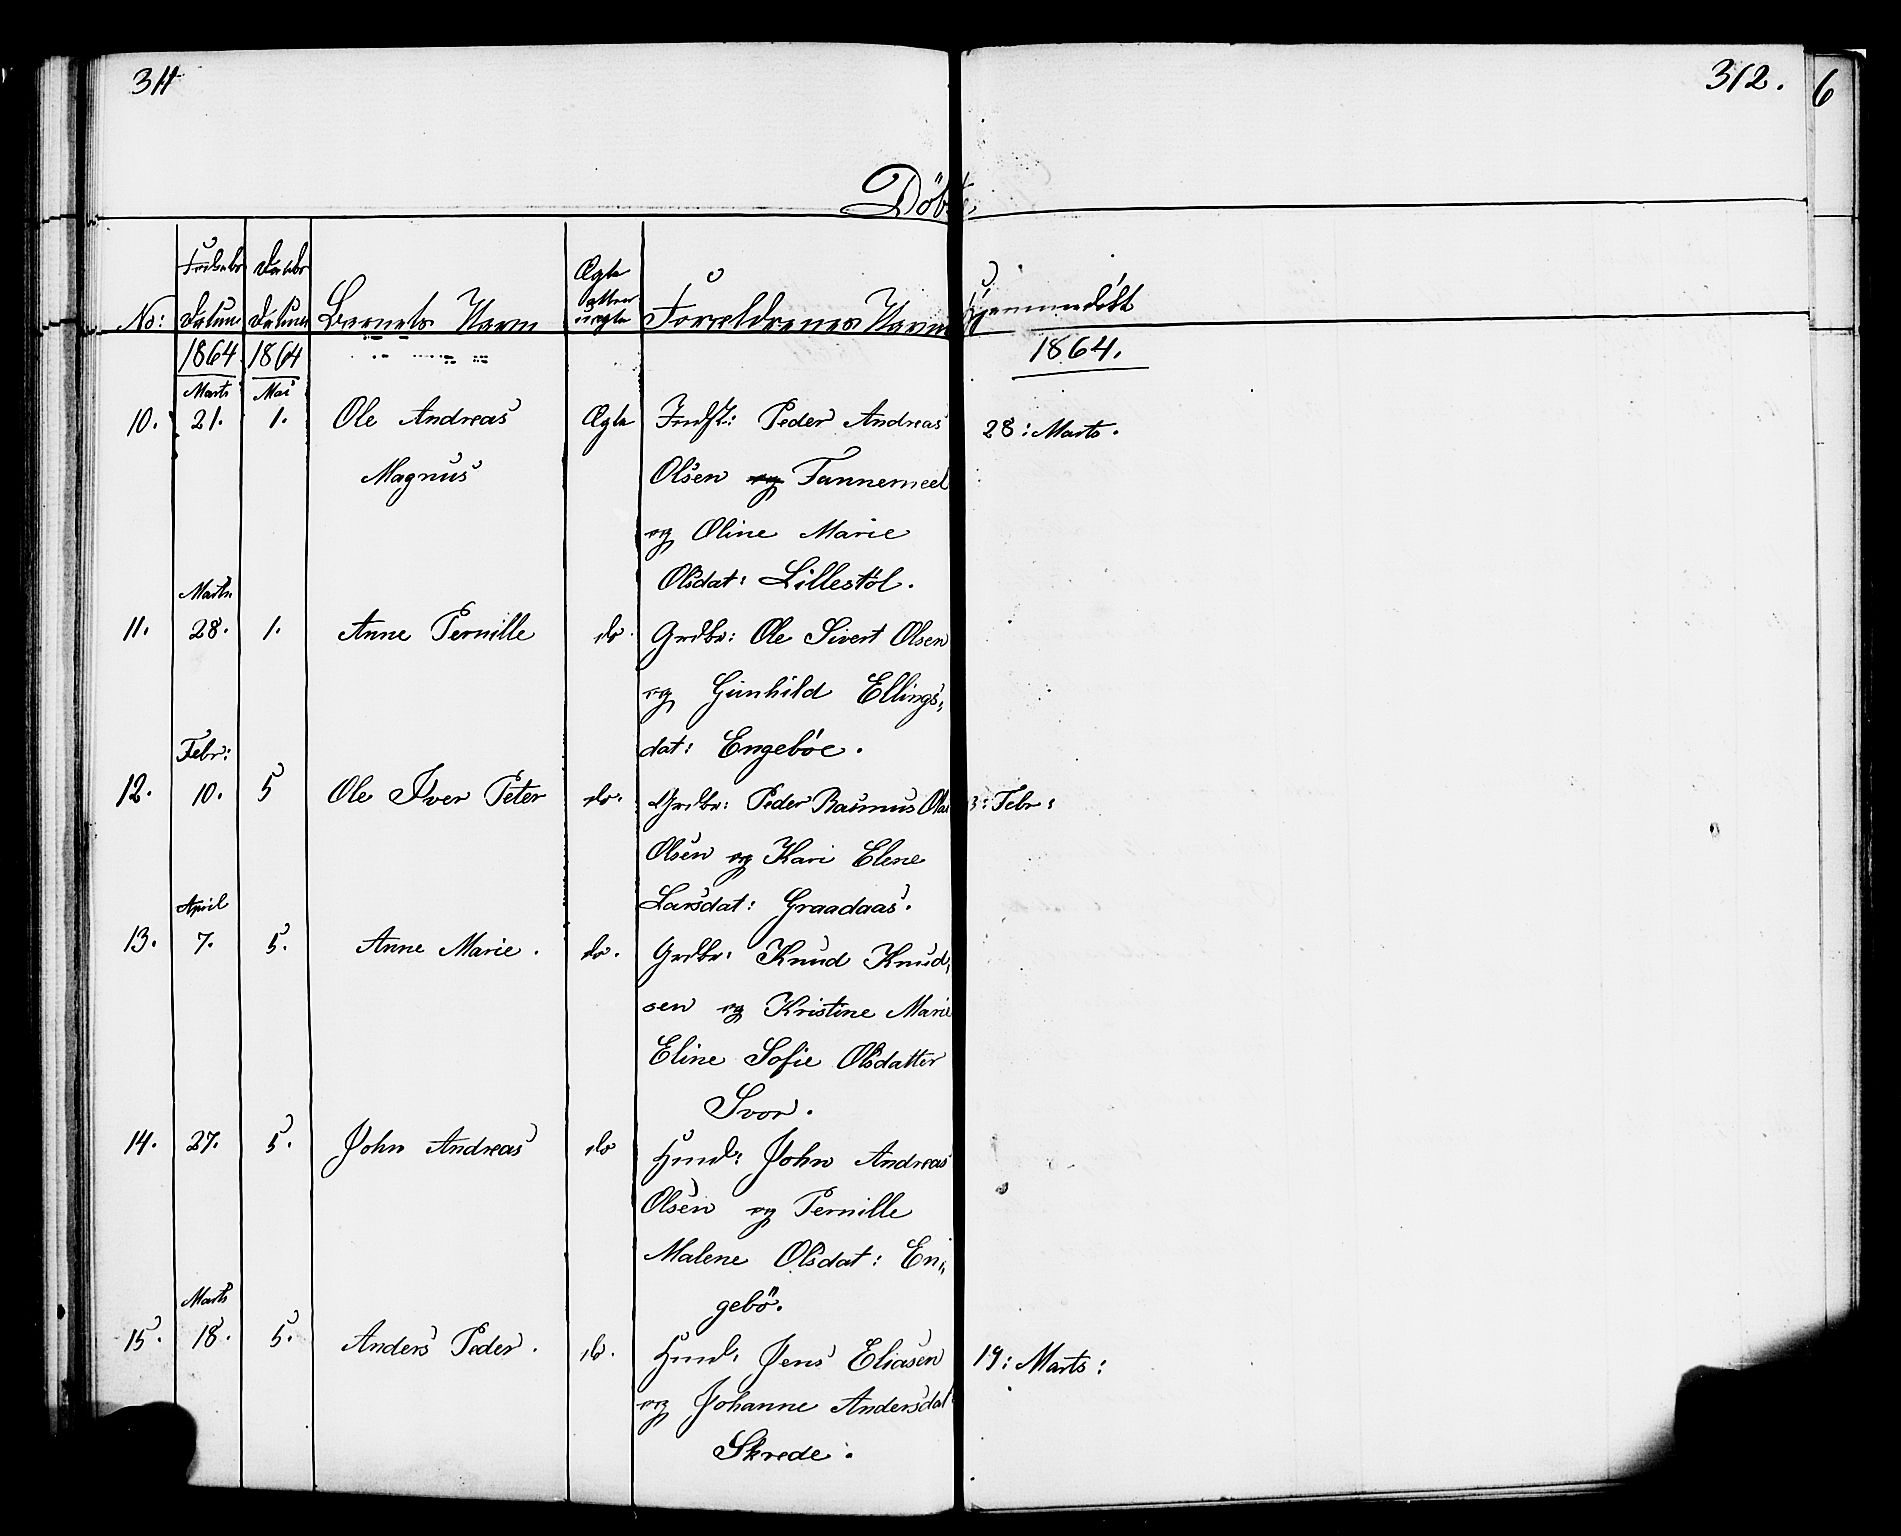 311
312.
6
Döbte,
No: Födsels Datum Daabs Datum Barnets Navn Ægte eller uægte Forældrenes Navne Hjemmedöbt
1864 1864 1864.
Marts Mai
10. 21. 1. Ole Andreas Ægte Indst: Peder Andreas 28: Marts.
Magnus Olsen og Tannemeel
og Oline Marie
Olsdat: Lillestöl.
Marts
11. 28. 1. Anne Pernille do. Grdbr: Ole Sivert Olsen
og Gunhild Ellings,
dat: Engebøe.
Febr:
12. 10. 5 Ole Iver Peter do. Grdbr: Peder Rasmus 3: Febr:
Olsen og Kari Elene
Larsdat: Graadaas.
April
13. 7. 5. Anne Marie. do. Grdbr: Knud Knud,
sen og Kristine Marie
Eline Sofie Olsdatter
Svor.
14. 27. 5. John Andreas do Hmd: John Andreas
Olsen og Pernille
Malene Olsdat: En,,
gebö.
Marts
15. 18. 5. Anders Peder. do. Hmd: Jens Eliasen 19: Marts:
og Johanne Andersdat
Skrede.